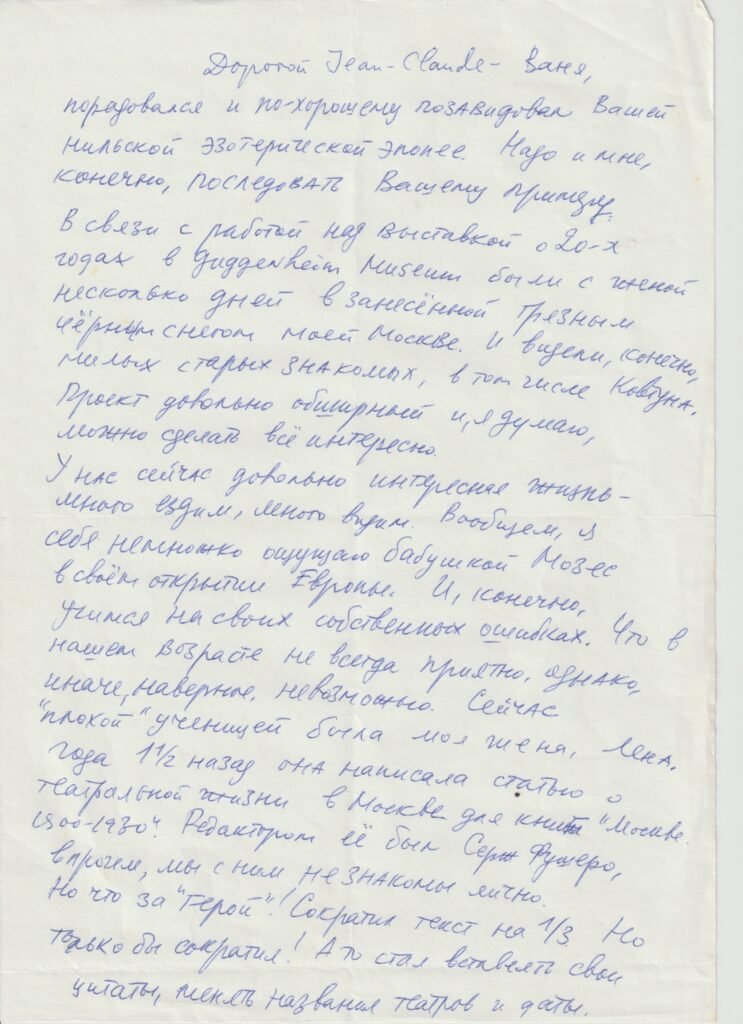 Дорогой Jean-Claude - Ваня,
порадовался и по-хорошему позавидовал Вашей
нильской эзотерической эпопее. Надо и мне,
конечно, последовать Вашему примеру.
В связи с работой над выставкой о 20-х
годах в Guggenheim Museum были с женой
несколько дней в занесённой грязным
чёрным снегом моей Москве. И видели, конечно,
милых старых знакомых, в том числе Ковтуна.
Проект довольно обширный и, я думаю,
можно сделать всё интересно.
У нас сейчас довольно интересная жизнь –
много ездим, много видим. Вообщем, я
себе немножко ощущаю бабушкой Мозес
в своём открытии Европы. И, конечно,
учимся на своих собственных ошибках. Что в
нашем возрасте не всегда приятно, однако,
иначе, наверное, невозможно. Сейчас
"плохой" ученицей была моя жена, Лена.
Года 1 1/2 назад она написала статью о
театральной жизни в Москве для книги "Москва
1900-1930". Редактором её был Серж Фушеро,
впрочем, мы с ним не знакомы лично.
Но что за "герой"! Сократил текст на 1/3. Но
только бы сократил! А то стал вставлять свои
цитаты, менять названия театров и даты.